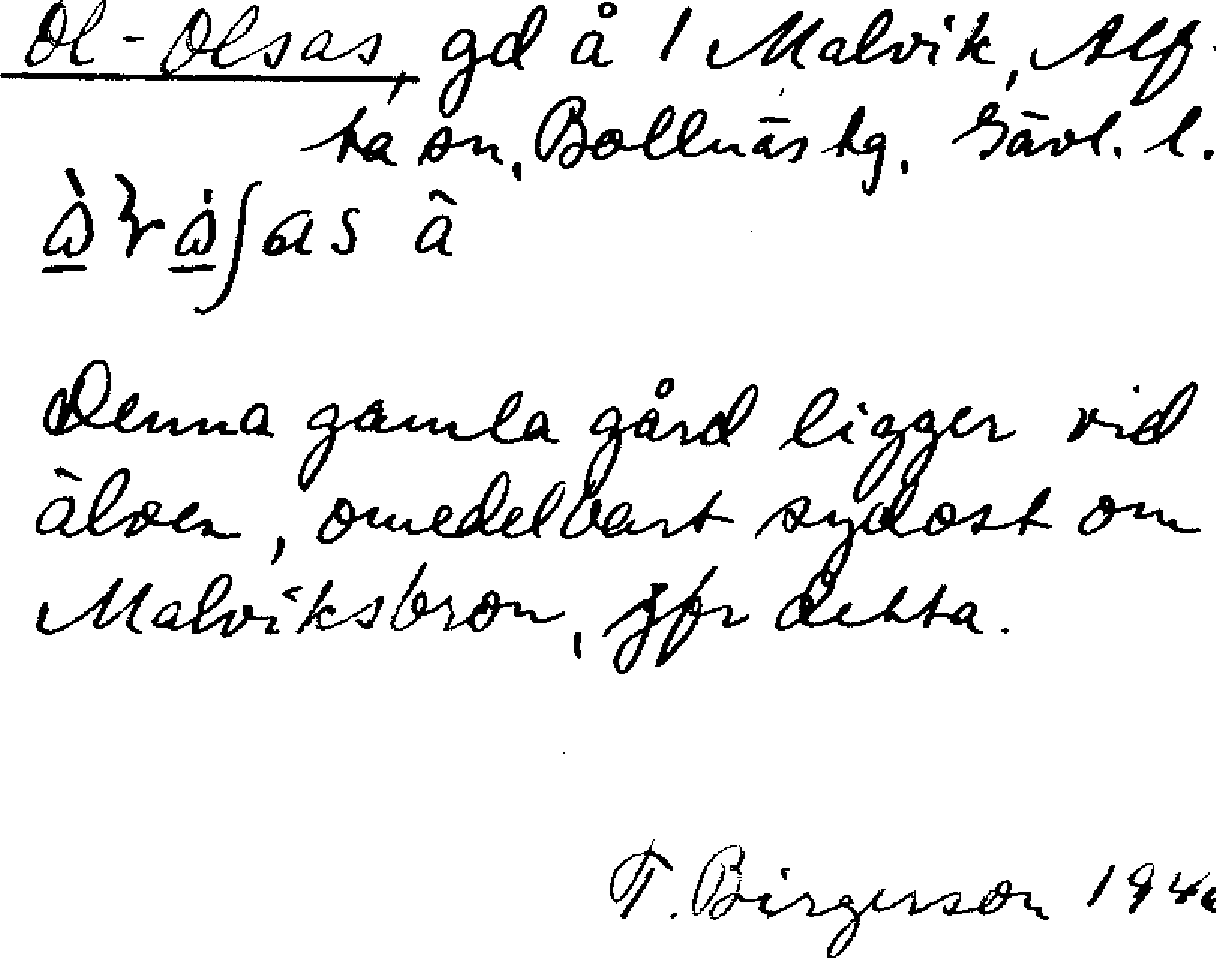 Ol-Olsas, gd å 1 Malvik, Alf-
ta sn, Bollnäs tg, Gävl. l.
Denna gamla gård ligger vid
älven, omedelbart sydost om
Malviksbron, jfr detta.
T. Birgerson